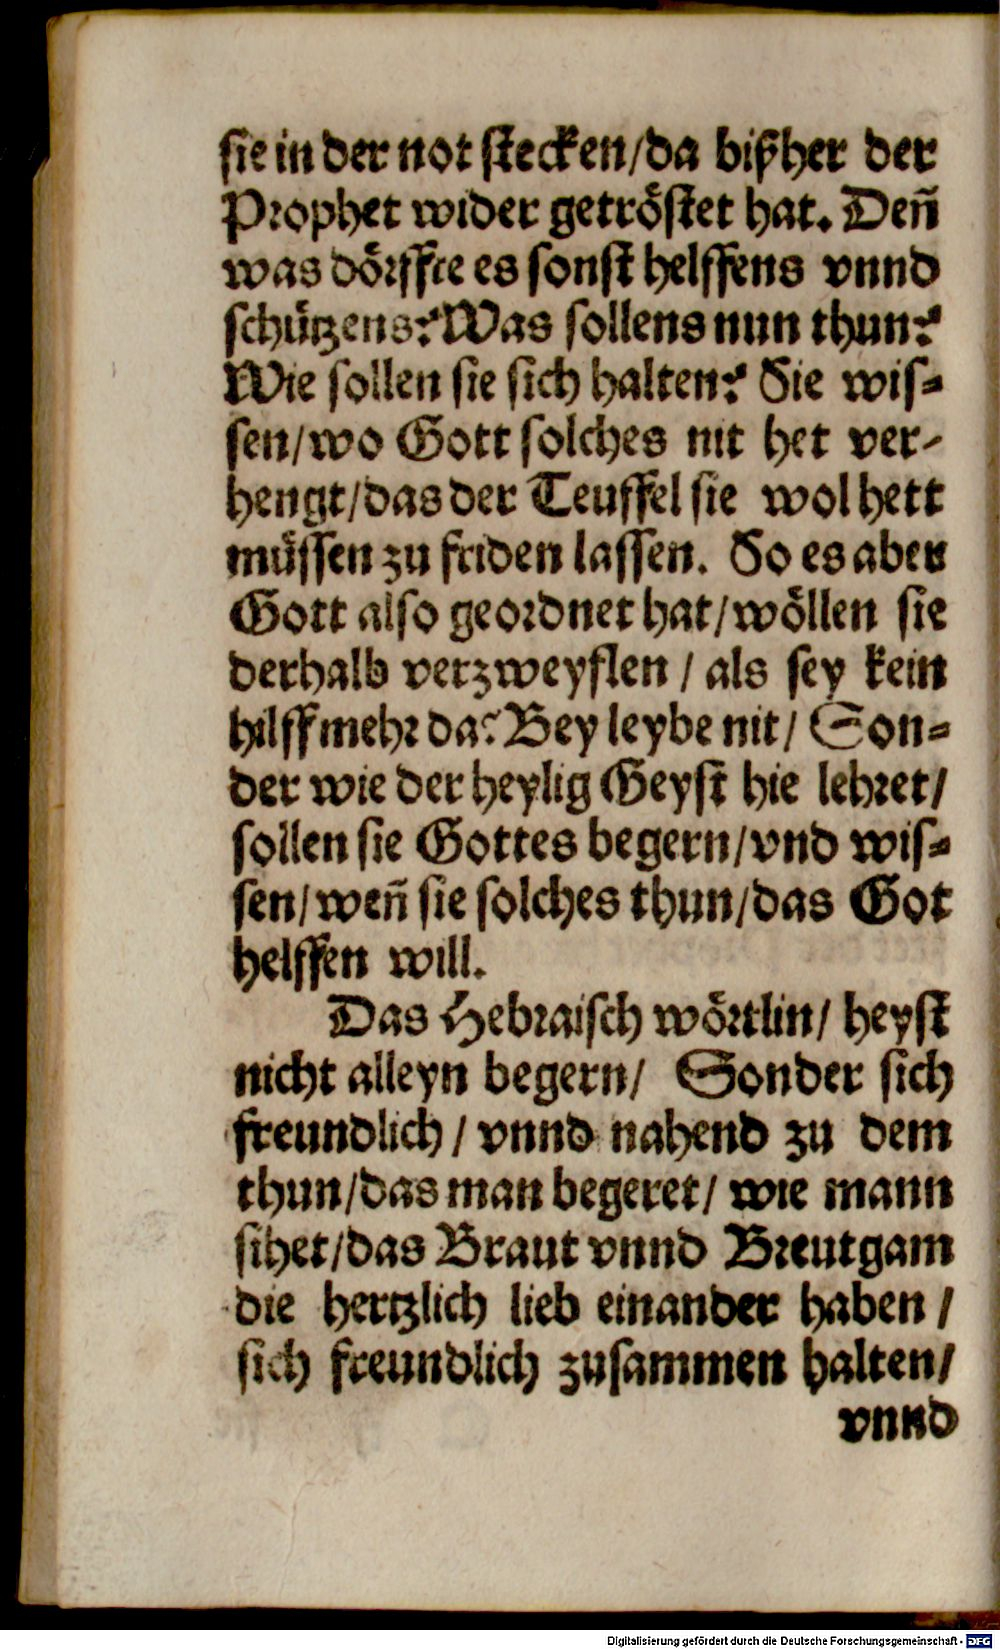 sie in der not stecken/da bißher der
Prophet wider getröstet hat. Deñ
was dörffte es sonst helffens vnnd
schützens? Was sollens nun thun?
Wie sollen sie sich halten? Sie wis-
sen/wo Gott solches nit het ver-
hengt/das der Teuffel sie wol hett
müssen zu friden lassen. So es aber
Gott also geordnet hat/wöllen sie
derhalb verzweyflen / als sey kein
hilff mehr da? Bey leybe nit/ Son-
der wie der heylig Geyst hie lehret/
sollen sie Gottes begern/vnd wis-
sen/weñ sie solches thun/das Got
helffen will.
Das Hebraisch wörtlin/ heyst
nicht alleyn begern/ Sonder sich
freundlich / vnnd nahend zu dem
thun/das man begeret/ wie mann
sihet/das Braut vnnd Breutgam
die hertzlich lieb einander haben /
sich freundlich zusammen halten/
vnnd
Digitalisierung gefördert durch die Deutsche Forschungsgemeinschaft - DFG